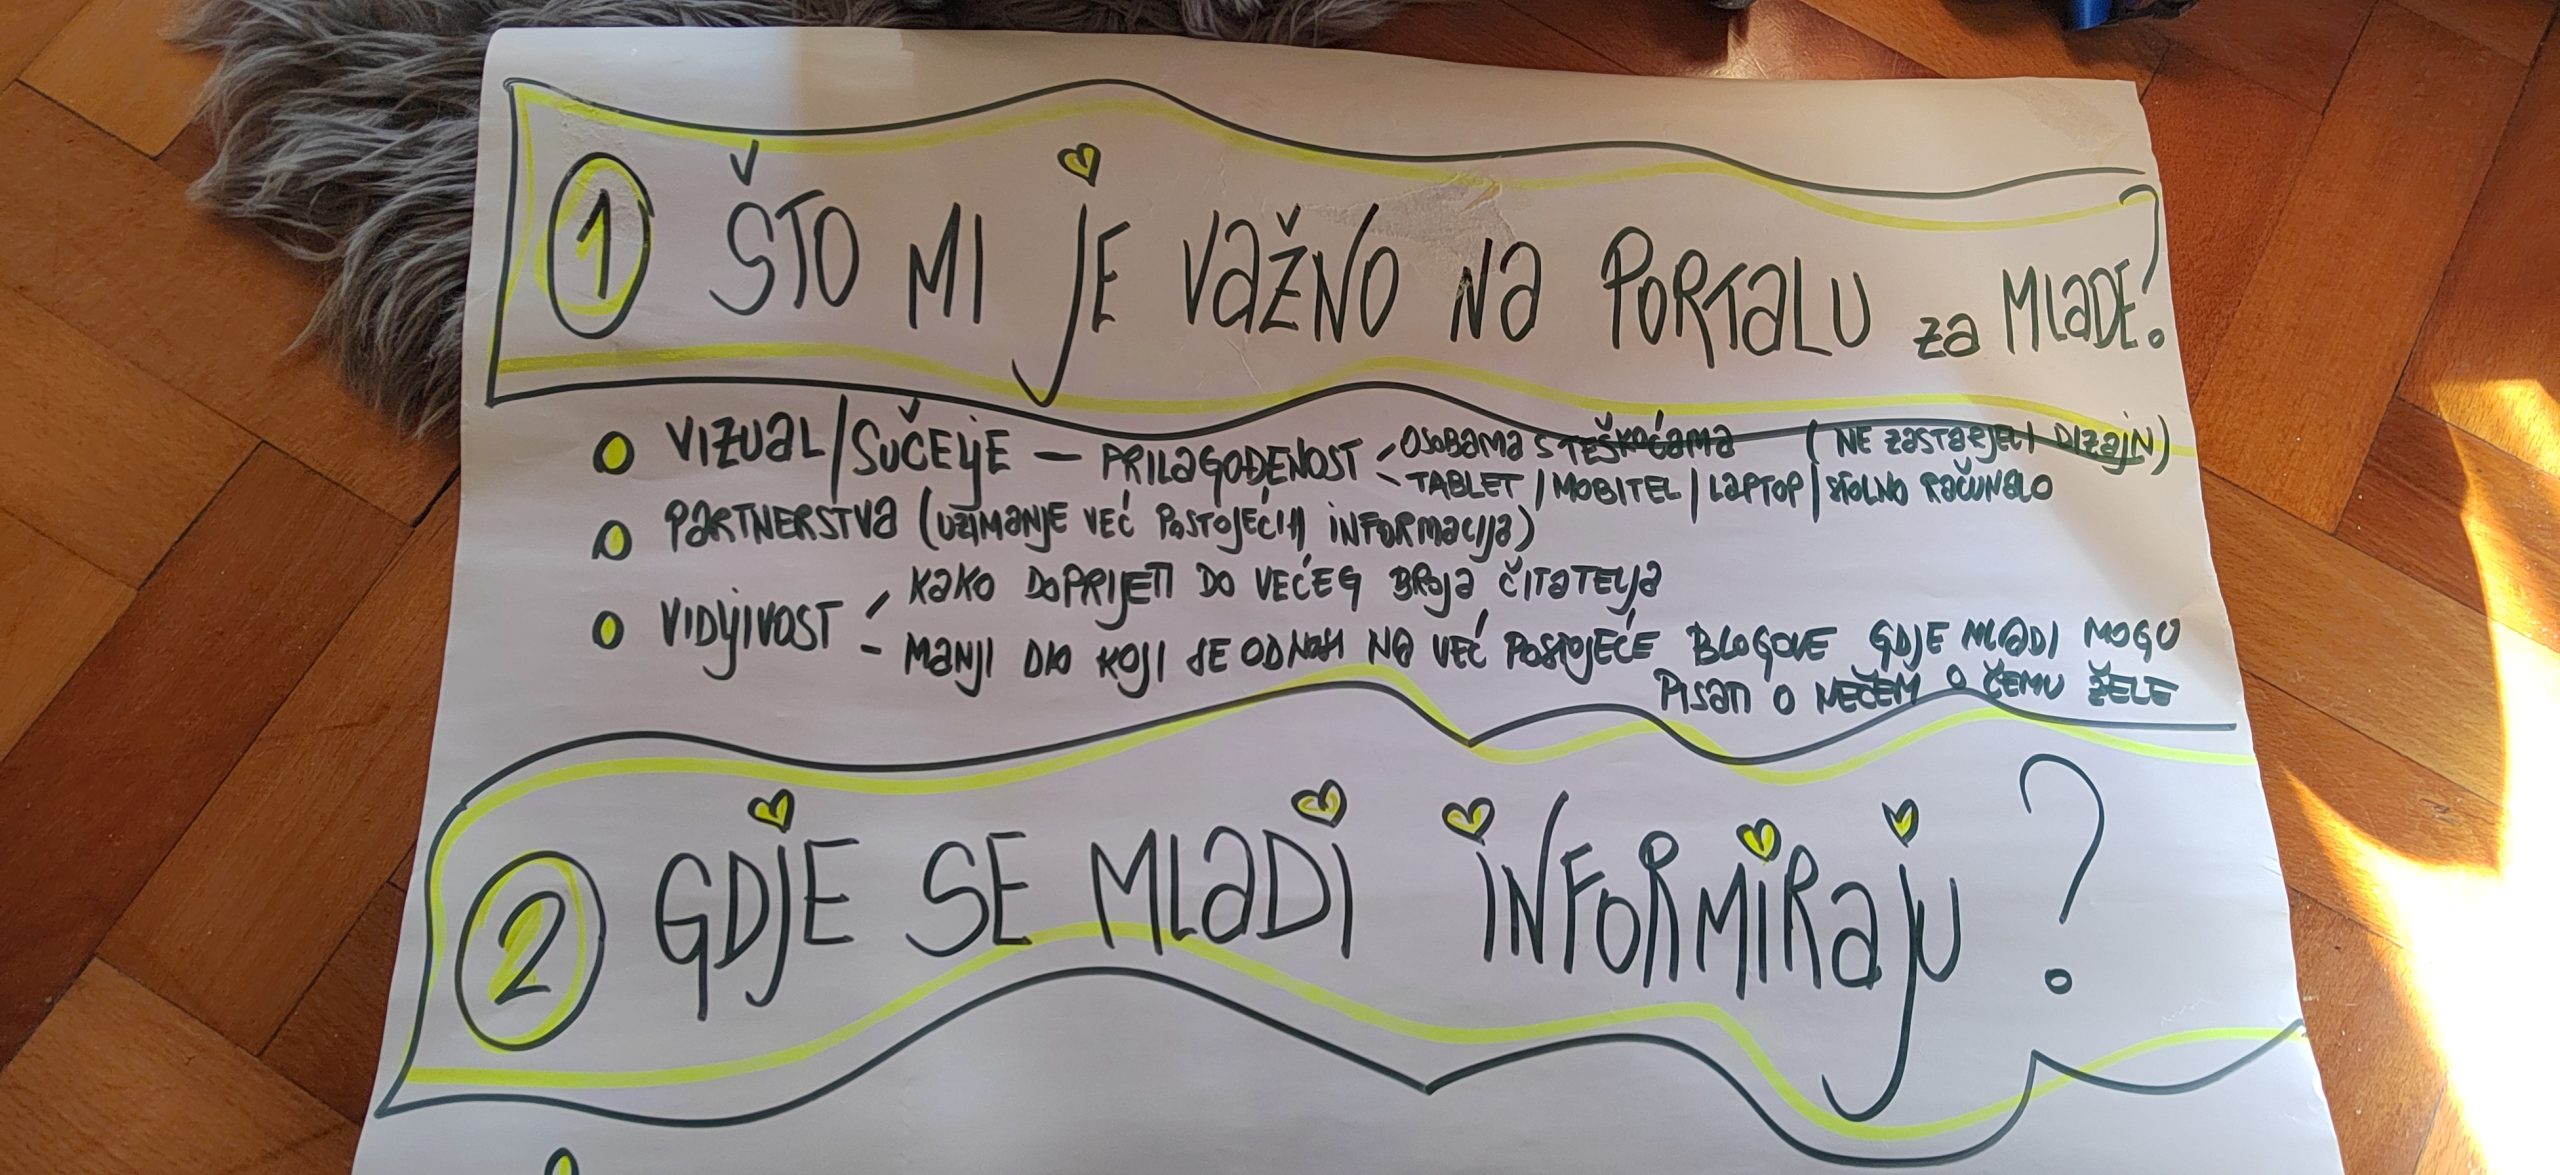 1 ŠTO MI JE VAŽNO NA PORTALU za MLADE?
VIZUAL/SUČELJE – PRILAGOĐENOST < OSOBAMA S TEŠKOĆAMA (NE ZASTARJELI DIZAJN)
TABLET / MOBITEL / LAPTOP / STOLNO RAČUNALO
PARTNERSTVA (UZIMANJE VEĆ POSTOJEĆIH INFORMACIJA)
KAKO DOPRIJETI DO VEĆEG BROJA ČITATELJA
VIDLJIVOST – MANJI DIO KOJI SE ODNOSI NA VEĆ POSTOJEĆE BLOGOVE GDJE MLADI MOGU
PISATI O NEČEM O ČEMU ŽELE
2 GDJE SE MLADI INFORMIRAJU?